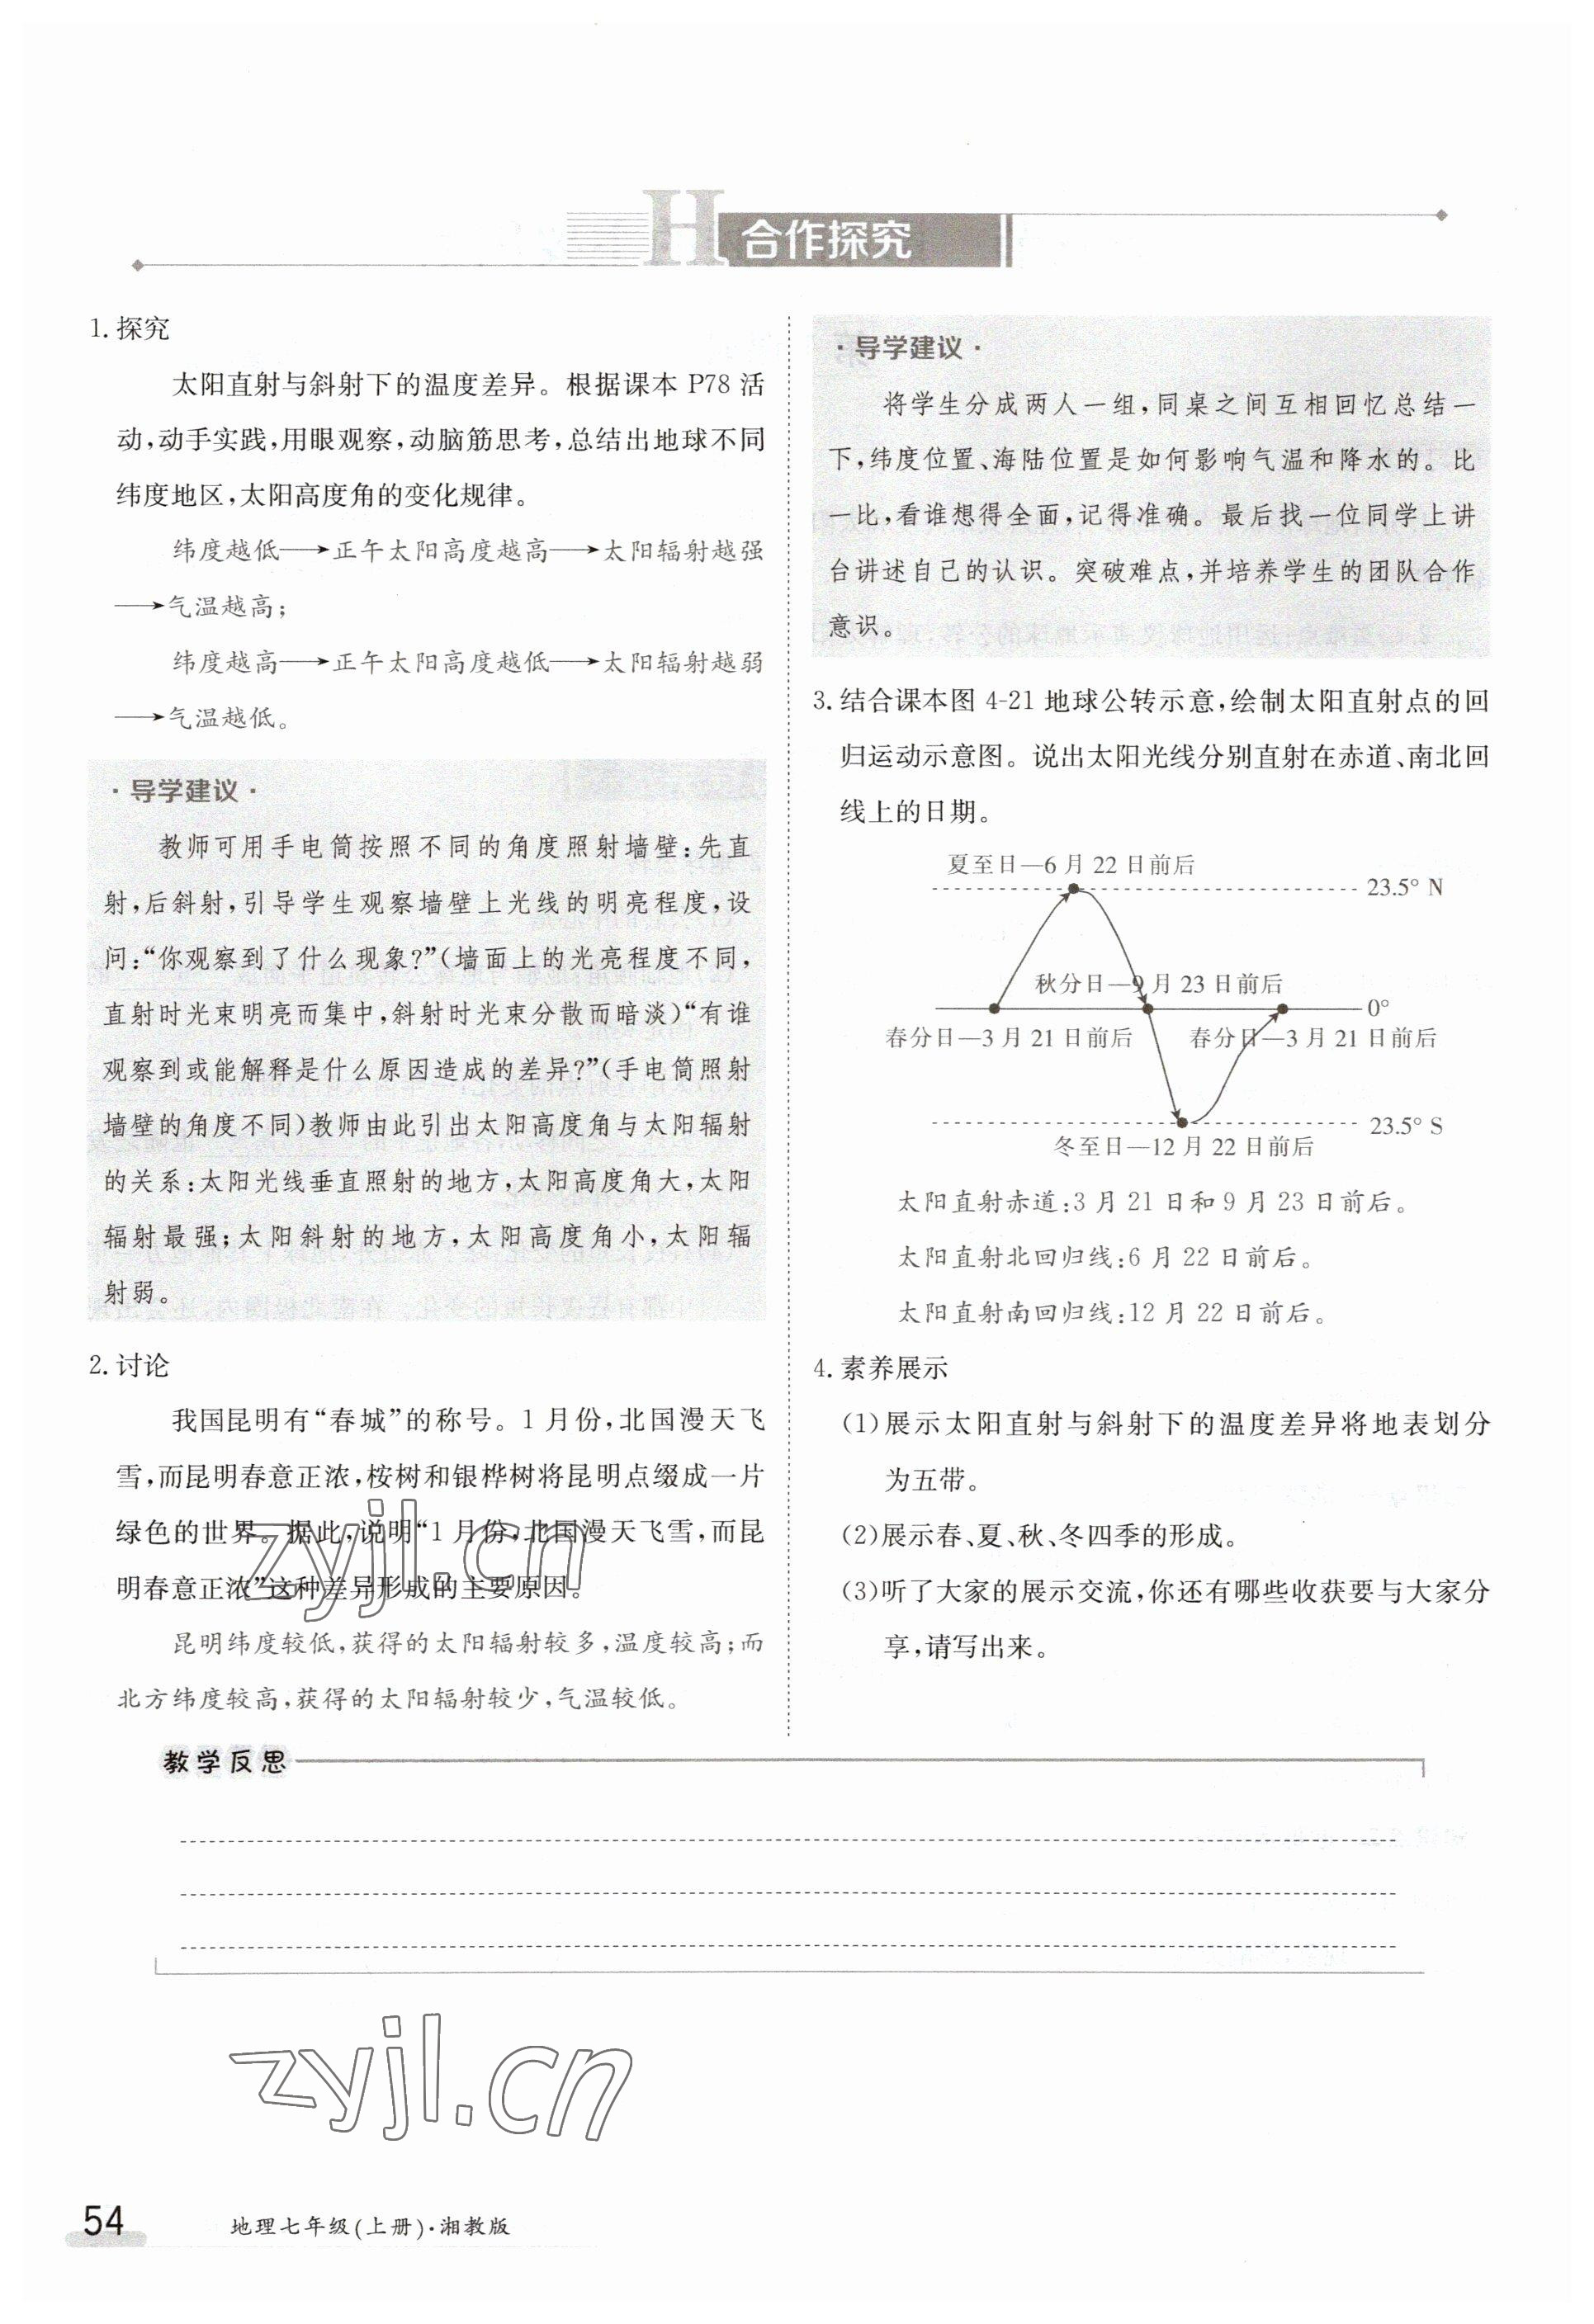 H 合作探究
1. 探究
太阳直射与斜射下的温度差异。根据课本 P78 活
动,动手实践,用眼观察,动脑筋思考,总结出地球不同
纬度地区,太阳高度角的变化规律。
纬度越低⟶正午太阳高度越高⟶太阳辐射越强
⟶气温越高;
纬度越高⟶正午太阳高度越低⟶太阳辐射越弱
⟶气温越低。
·导学建议·
教师可用手电筒按照不同的角度照射墙壁:先直
射,后斜射,引导学生观察墙壁上光线的明亮程度,设
问:“你观察到了什么现象?”(墙面上的光亮程度不同,
直射时光束明亮而集中,斜射时光束分散而暗淡)“有谁
观察到或能解释是什么原因造成的差异?”(手电筒照射
墙壁的角度不同)教师由此引出太阳高度角与太阳辐射
的关系:太阳光线垂直照射的地方,太阳高度角大,太阳
辐射最强;太阳斜射的地方,太阳高度角小,太阳辐
射弱。
2. 讨论
我国昆明有“春城”的称号。1 月份,北国漫天飞
雪,而昆明春意正浓,桉树和银桦树将昆明点缀成一片
绿色的世界。据此,说明“1 月份,北国漫天飞雪,而昆
明春意正浓”这种差异形成的主要原因。
昆明纬度较低,获得的太阳辐射较多,温度较高;而
北方纬度较高,获得的太阳辐射较少,气温较低。
·导学建议·
将学生分成两人一组,同桌之间互相回忆总结一
下,纬度位置、海陆位置是如何影响气温和降水的。比
一比,看谁想得全面,记得准确。最后找一位同学上讲
台讲述自己的认识。突破难点,并培养学生的团队合作
意识。
3. 结合课本图 4-21 地球公转示意,绘制太阳直射点的回
归运动示意图。说出太阳光线分别直射在赤道、南北回
线上的日期。
夏至日—6 月 22 日前后
23.5° N
秋分日—9 月 23 日前后
0°
春分日—3 月 21 日前后
春分日—3 月 21 日前后
23.5° S
冬至日—12 月 22 日前后
太阳直射赤道:3 月 21 日和 9 月 23 日前后。
太阳直射北回归线:6 月 22 日前后。
太阳直射南回归线:12 月 22 日前后。
4. 素养展示
(1)展示太阳直射与斜射下的温度差异将地表划分
为五带。
(2)展示春、夏、秋、冬四季的形成。
(3)听了大家的展示交流,你还有哪些收获要与大家分
享,请写出来。
zyjl.cn
教学反思
zyjl.cn
54
地理七年级(上册)·湘教版